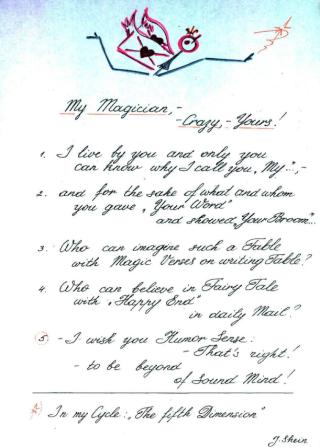 My Magician,-
Crazy,- Yours!
1. I live by you and only you
can know why I call you „My"...,-
2. and for the sake of what and whom
you gave „Your Word"
and showed „Your Broom"...
3. Who can imagine such a Fable
with Magic Verses on writing Table?
4. Who can believe in Fairy Tale
with „Happy End"
in daily Mail?
5. - I wish you Humor Sense:
- That's right!
- to be beyond
of Sound Mind!
In my Cycle: „The fifth Dimension"
J. Shein